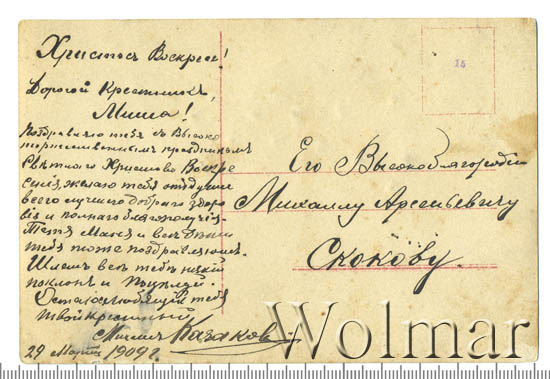 Христос Воскресе!
Дорогой Крестникъ,
Миша!
Поздравляю тебя съ Высоко
торжественнымъ праздникомъ
Свѣтлаго Христово Воскре
сенія, желаю тебѣ отъ души
всего лучшаго добраго здоро
вія и полнаго благополучія.
Тетя Маня и всѣ
тебя тоже поздравляемъ.
Шлемъ всѣ тебѣ низкій
поклонъ и поцѣлуй.
Остаюсь любящій тебя
твой крестный
Казаковъ
29 Марта 1909 г.
15
Его Высокоблагородію
Михаилу Арсеньевичу
Скокову.
Wolmar